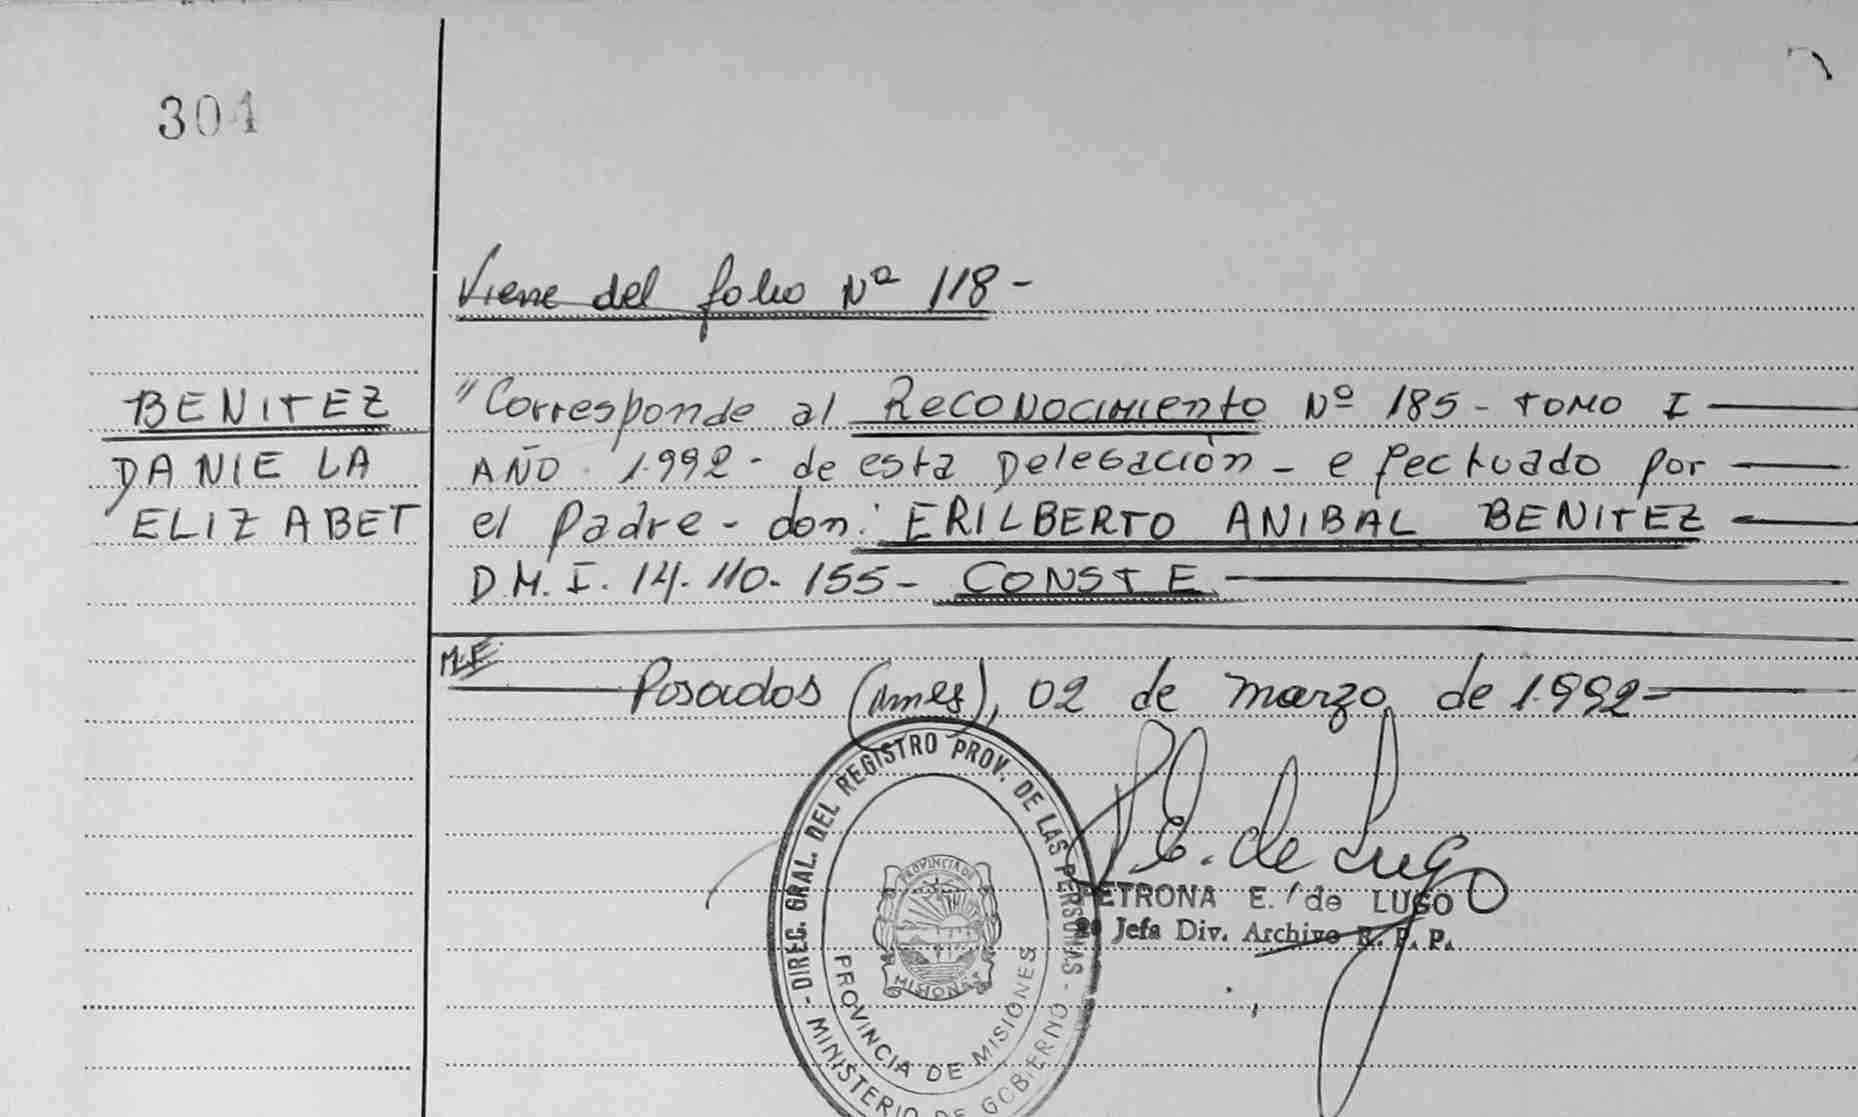 304
Viene del folio Nº 118-
BENITEZ
DANIELA
ELIZABET
"Corresponde al Reconocimiento Nº 185- TOMO I
AÑO 1.992- de esta Delegación - efectuado por
el Padre - don: ERILBERTO ANIBAL BENITEZ
D.M.I. 14.110.155- CONSTE
M.E
Posadas (Mnes), 02 de marzo de 1.992=
P.E. de Lugo
PETRONA E. de LUGO
Jefa Div. Archivo R. P. P.
- DIREC. GRAL. DEL REGISTRO PROV. DE LAS PERSONAS -
MINISTERIO DE GOBIERNO
PROVINCIA DE MISIONES
PROVINCIA DE
MISIONES